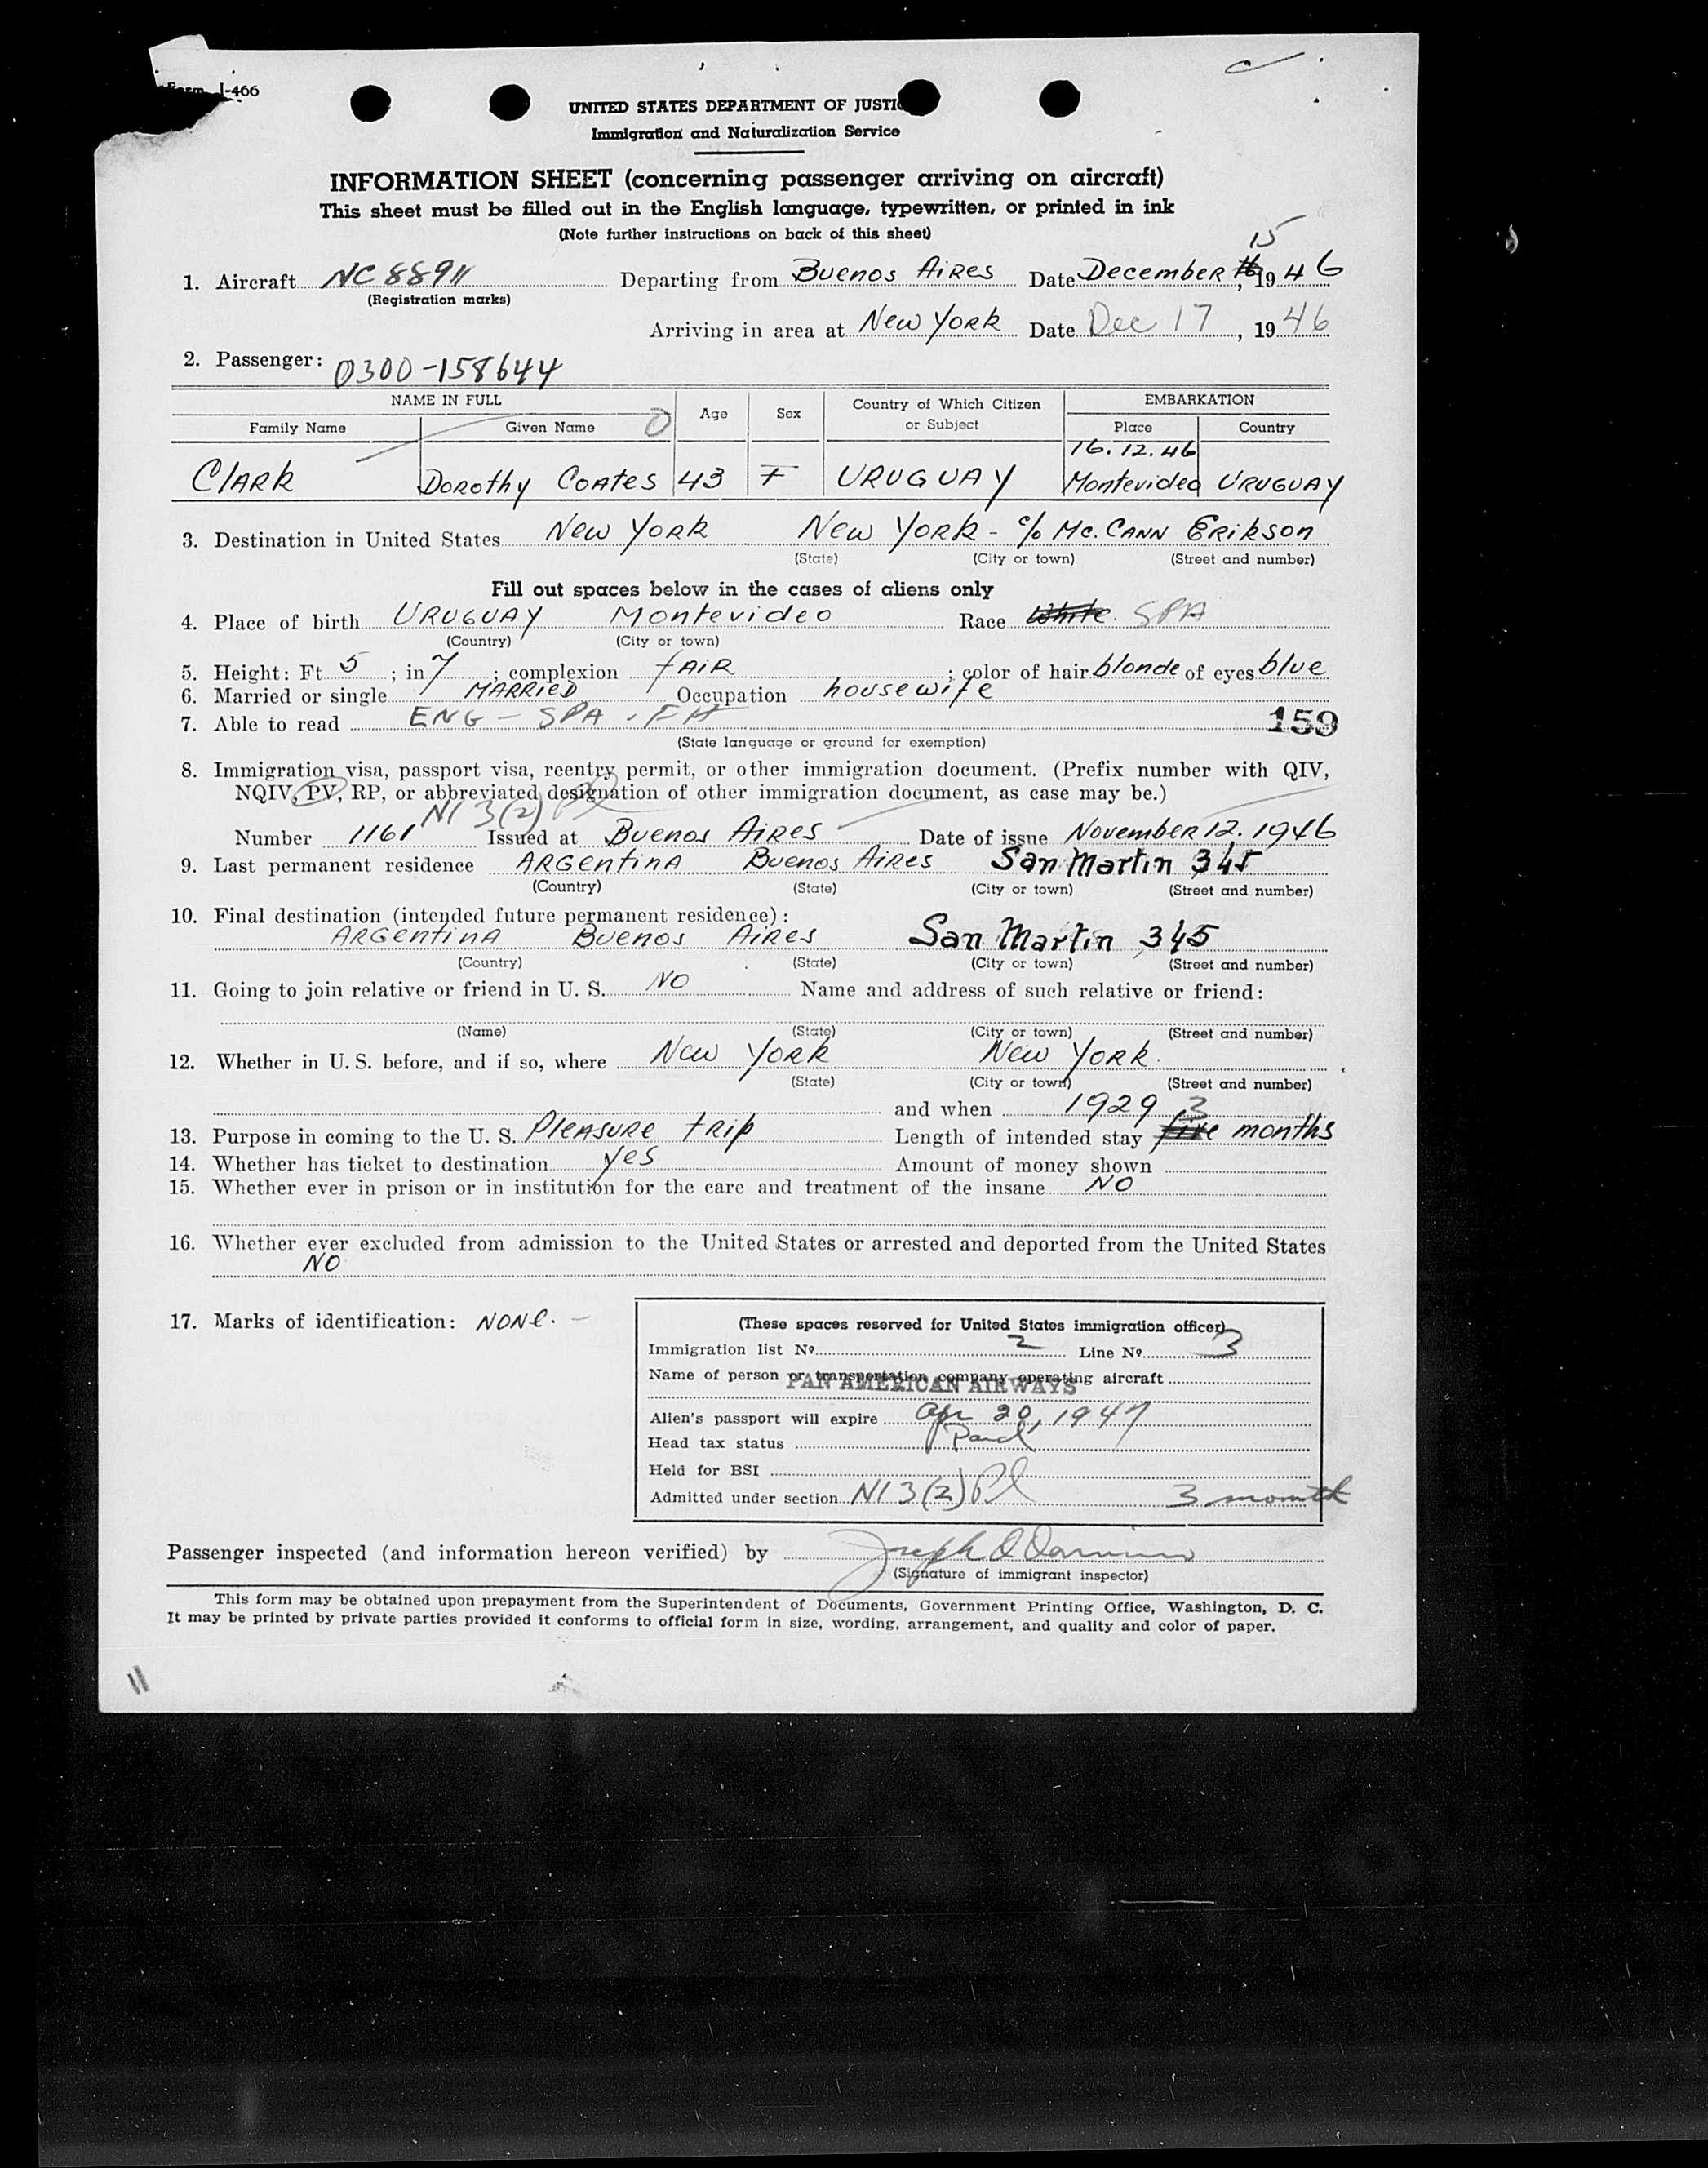 Form I-466
UNITED STATES DEPARTMENT OF JUSTIC
Immigration and Naturalization Service
INFORMATION SHEET (concerning passenger arriving on aircraft)
This sheet must be filled out in the English language, typewritten, or printed in ink
(Note further instructions on back of this sheet)
15
1. Aircraft NC 88911 Departing from Buenos Aires Date December 16, 1946
(Registration marks)
Arriving in area at New York Date Dec 17, 1946
2. Passenger: 0300-158644
NAME IN FULL Age Sex Country of Which Citizen or Subject EMBARKATION
Family Name Given Name O Place Country
16.12.46
Clark Dorothy Coates 43 F URUGUAY Montevideo URUGUAY
3. Destination in United States New York New York - c/o Mc. Cann Erikson
(State) (City or town) (Street and number)
Fill out spaces below in the cases of aliens only
4. Place of birth URUGUAY Montevideo Race White SPA
(Country) (City or town)
5. Height: Ft 5 ; in 7 ; complexion fair ; color of hair blonde of eyes blue
6. Married or single MARRIED Occupation housewife
7. Able to read ENG - SPA - FH
159
(State language or ground for exemption)
8. Immigration visa, passport visa, reentry permit, or other immigration document. (Prefix number with QIV,
NQIV, PV, RP, or abbreviated designation of other immigration document, as case may be.)
NI 3(2) Pl
Number 1161 Issued at Buenos Aires Date of issue November 12. 1946
9. Last permanent residence ARGENTINA Buenos Aires San Martin 345
(Country) (State) (City or town) (Street and number)
10. Final destination (intended future permanent residence):
ARGENTINA Buenos Aires San Martin 345
(Country) (State) (City or town) (Street and number)
11. Going to join relative or friend in U. S. NO Name and address of such relative or friend:
(Name) (State) (City or town) (Street and number)
12. Whether in U. S. before, and if so, where New York New York.
(State) (City or town) (Street and number)
and when 1929
3
13. Purpose in coming to the U. S. Pleasure trip Length of intended stay five months
14. Whether has ticket to destination yes Amount of money shown
15. Whether ever in prison or in institution for the care and treatment of the insane NO
16. Whether ever excluded from admission to the United States or arrested and deported from the United States
NO
17. Marks of identification: NONE. -
(These spaces reserved for United States immigration officer)
Immigration list No. 2 Line No. 3
Name of person or transportation company operating aircraft
PAN AMERICAN AIRWAYS
Alien's passport will expire Apr 20, 1947
Head tax status Paid
Held for BSI
Admitted under section NI 3(2) Pl 3 month
Passenger inspected (and information hereon verified) by Joseph
(Signature of immigrant inspector)
This form may be obtained upon prepayment from the Superintendent of Documents, Government Printing Office, Washington, D. C.
It may be printed by private parties provided it conforms to official form in size, wording, arrangement, and quality and color of paper.
11